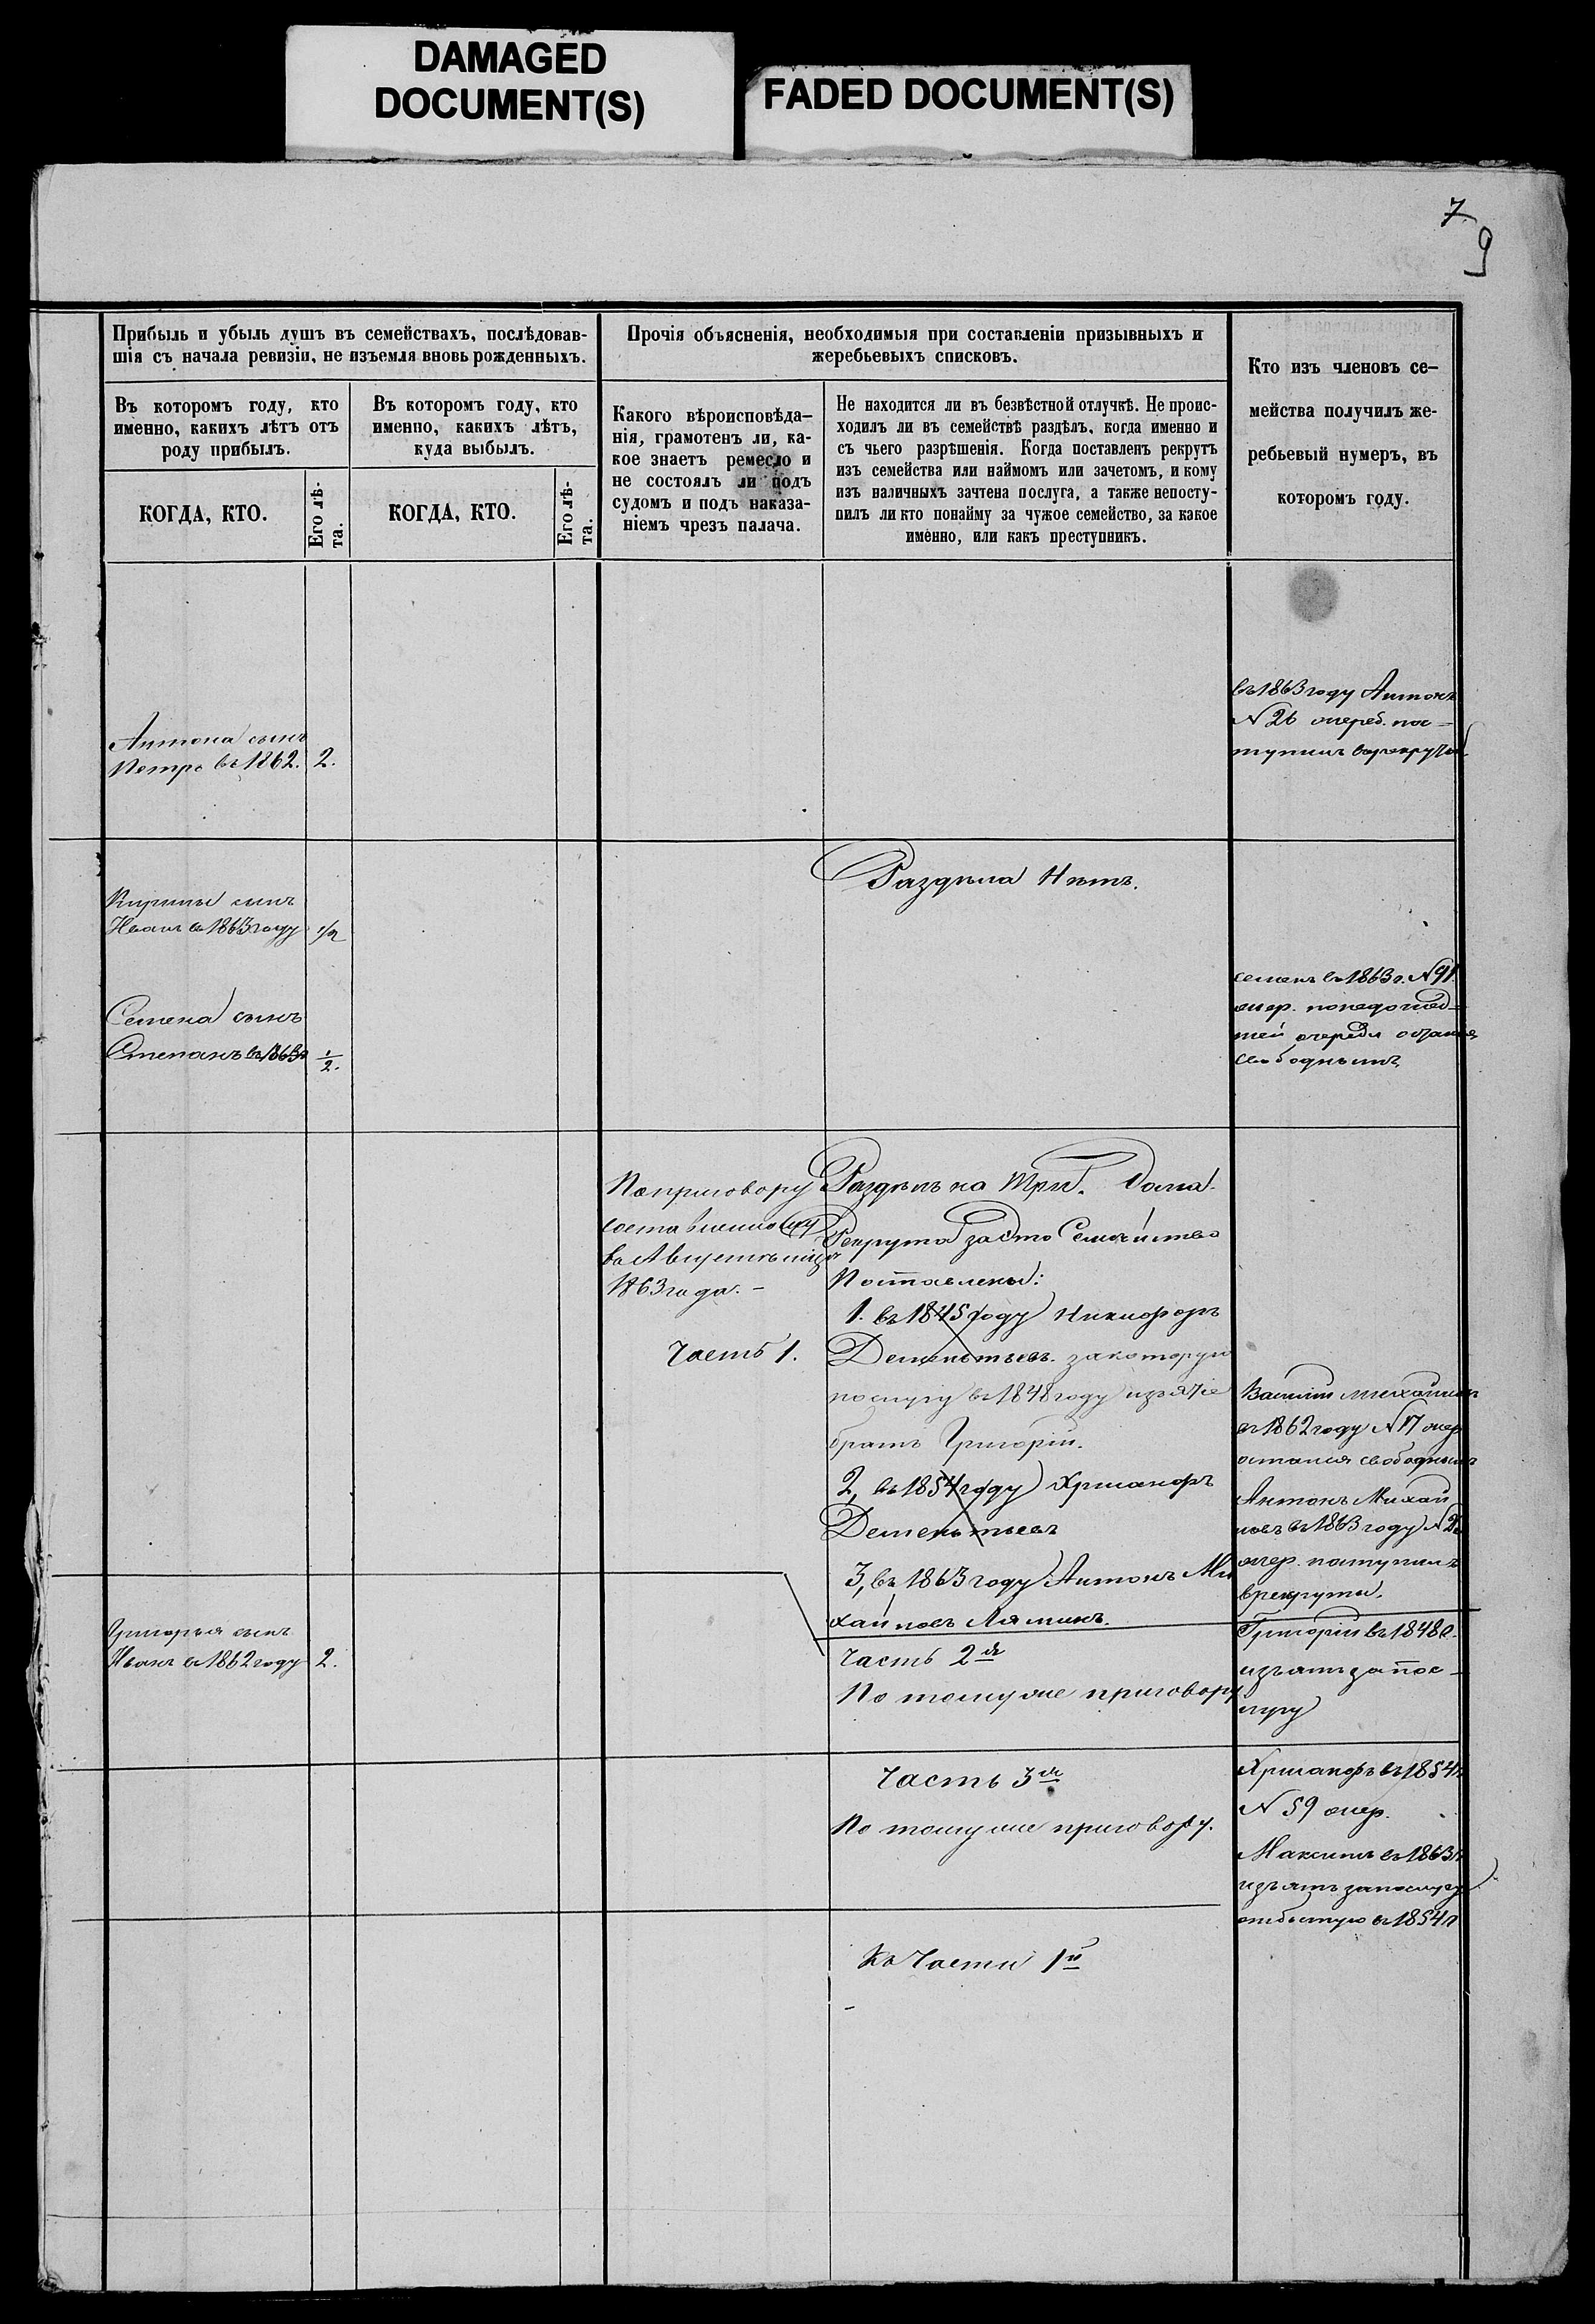 DAMAGED
DOCUMENT(S)
FADED DOCUMENT(S)
7
9
Прибыль и убыль душъ въ семействахъ, послѣдовав-
шія съ начала ревизіи, не изъемля вновь рожденныхъ.
Въ которомъ году, кто
именно, какихъ лѣтъ отъ
роду прибылъ.
КОГДА, КТО.
Его лѣ-
та.
Въ которомъ году, кто
именно, какихъ лѣтъ,
куда выбылъ.
КОГДА, КТО.
Его лѣ-
та.
Прочія объясненія, необходимыя при составленіи призывныхъ и
жеребьевыхъ списковъ.
Какого вѣроисповѣда-
нія, грамотенъ ли, ка-
кое знаетъ ремесло и
не состоялъ ли подъ
судомъ и подъ наказа-
ніемъ чрезъ палача.
Не находится ли въ безвѣстной отлучкѣ. Не проис-
ходилъ ли въ семействѣ раздѣлъ, когда именно и
съ чьего разрѣшенія. Когда поставленъ рекрутъ
изъ семейства или наймомъ или зачетомъ, и кому
изъ наличныхъ зачтена послуга, а также непосту-
пилъ ли кто понайму за чужое семейство, за какое
именно, или какъ преступникъ.
Кто изъ членовъ се-
мейства получилъ же-
ребьевый нумеръ, въ
которомъ году.
Антона сынъ
Петръ въ 1862. 2.
въ 1863 году Антонъ
N 26 жереб. пос-
тупилъ въ рекруты
Раздѣла Нѣтъ.
сынъ
Иванъ в 1863 году 1/2
Семена сынъ
Степанъ въ 1863 г 1/2.
Семенъ въ 1863 г. N 91.
жер. понедошед-
шей очереди остался
свободнымъ
По приговору
составленному
въ Августѣ мцѣ
1863 года. -
Часть 1.
Раздѣлъ на три. дома.
Рекрута за это Семейство
Поставлены:
1. въ 1845 году Никифоръ
Дементьевъ. за которую
послугу въ 1848 году изъятъ
братъ Григорій.
2, въ 1854 году Хрисанфъ
Дементьевъ
3, въ 1863 году Антонъ Ми
хайловъ Ляминъ.
Василій Михайловъ
въ 1862 году N 17 жер
остался свободнымъ
Антонъ Михай
ловъ въ 1863 году N 26
жер. поступилъ
в рекруты.
Григорья сынъ
Иванъ в 1862 году 2.
Часть 2я
По тому же приговору
Григорій въ 1848 г.
изъятъ за пос-
лугу
Часть 3я
По тому же приговору.
Хрисанфъ въ 1854 г
N 59 жер.
Максимъ въ 1863 г
изъятъ за послугу
отбытую въ 1854 г
Къ Части 1й